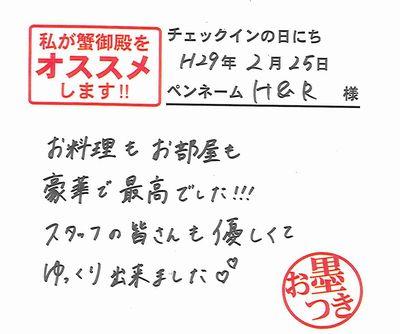 私が蟹御殿を
オススメ
します!!
チェックインの日にち
H29年 2月25日
ペンネーム H&R 様
お料理もお部屋も
豪華で最高でした!!!
スタッフの皆さんも優しくて
ゆっくり出来ました♡♡
お墨つき